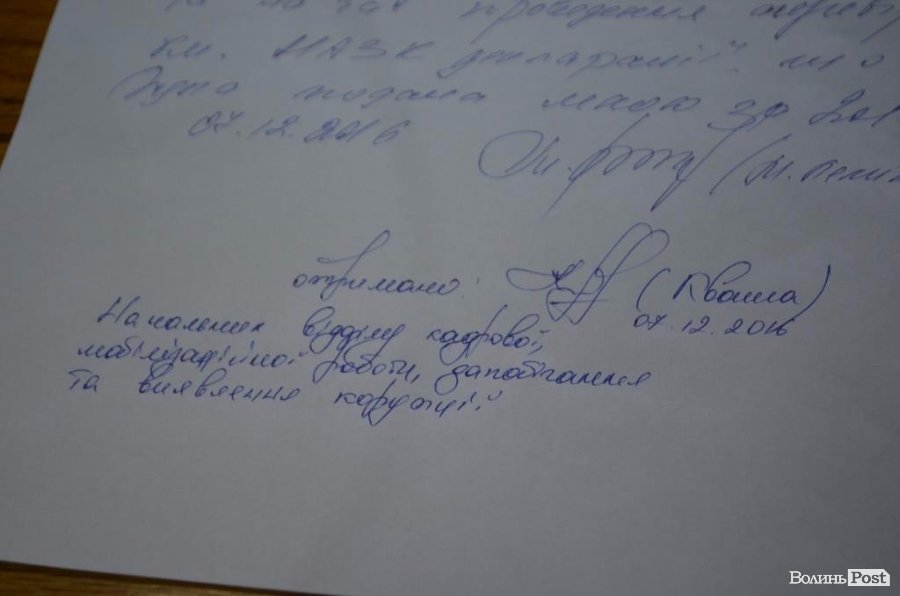 та на час проведення перевір
км. НАЗК декларації, що
була подана мною за 201
07.12.2016
отримано: (Кваша)
07.12.2016
Начальник відділу кадрової,
мобілізаційної роботи, запобігання
та виявлення корупції
ВолиньPost